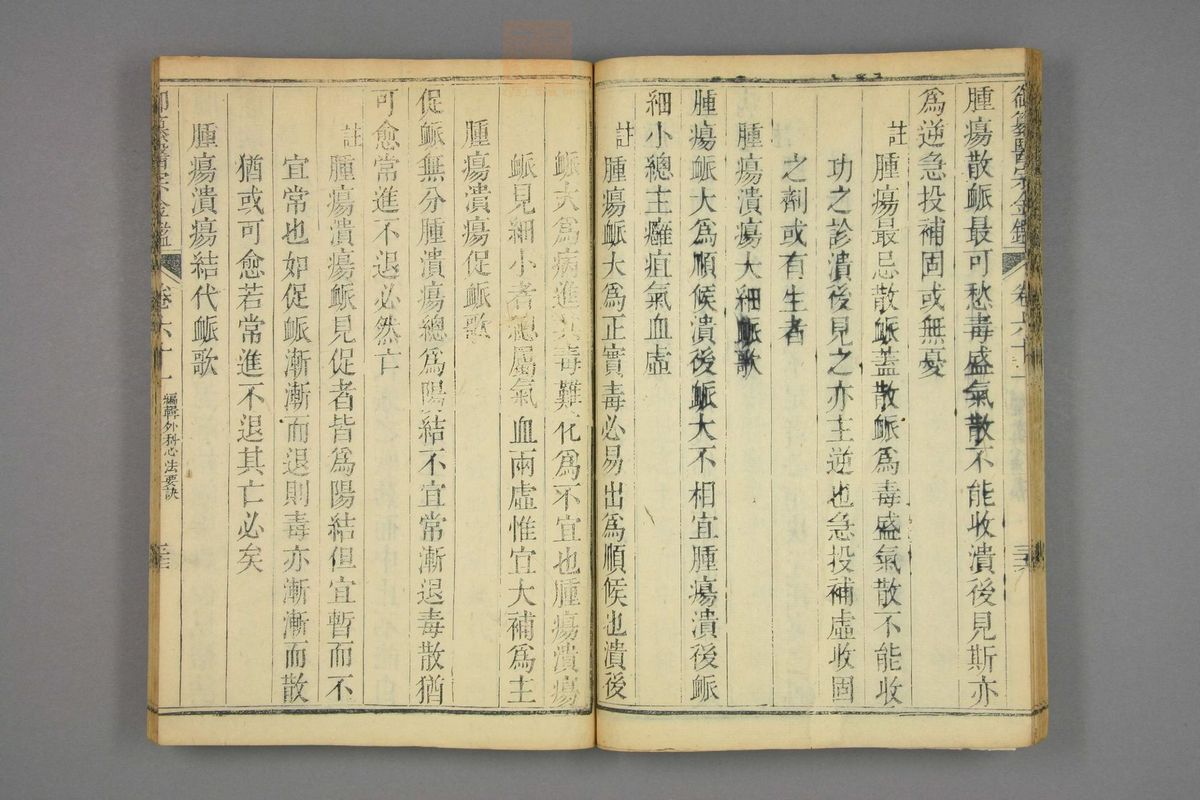 御纂醫宗金鑑 卷六十一
腫瘍散脈最可愁毒盛氣散不能收潰後見斯亦
爲逆急投補固或無憂
註腫瘍最忌散脈蓋散脈爲毒盛氣散不能收
功之診潰後見之亦主逆也急投補虛收固
之劑或有生者
腫瘍潰瘍大細脈歌
腫瘍脈大爲順候潰後脈大不相宜腫瘍潰後脈
細小總主癰疽氣血虛
註腫瘍脈大爲正實毒必易出爲順候也潰後
脈大爲病進毒難化爲不宜也腫瘍潰瘍
脈見細小者總屬氣血兩虛惟宜大補爲主
腫瘍潰瘍促脈歌
促脈無分腫潰瘍總爲陽結不宜常漸退毒散猶
可愈常進不退必然亡
註腫瘍潰瘍脈見促者皆爲陽結但宜暫而不
宜常也如促脈漸漸而退則毒亦漸漸而散
猶或可愈若常進不退其亡必矣
腫瘍潰瘍結代脈歌
御纂醫宗金鑑 卷六十一 編輯外科心法要訣